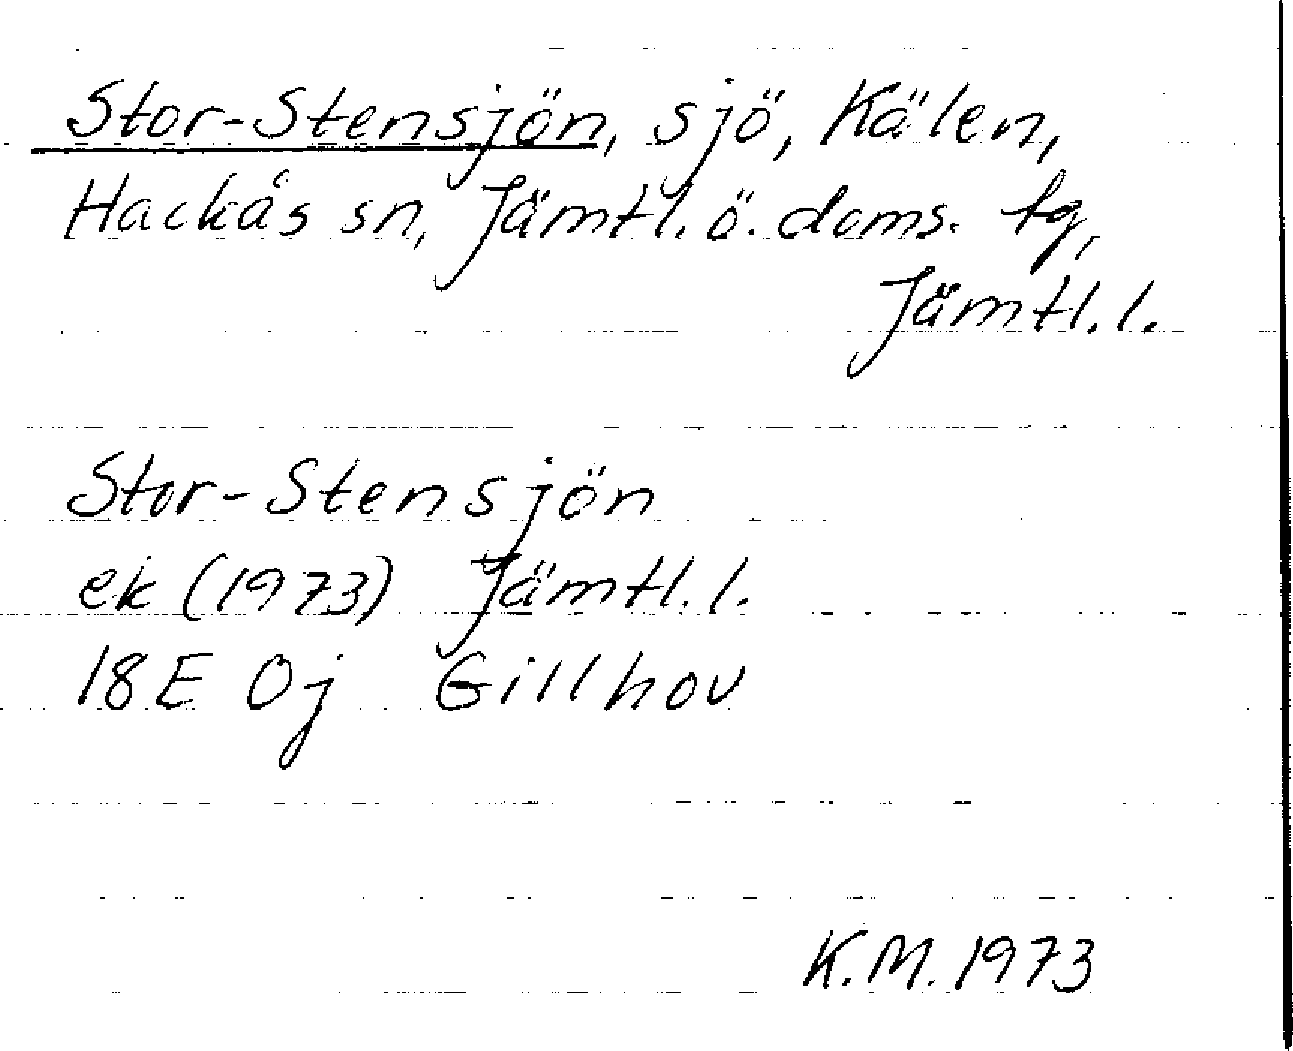 Stor-Stensjön, sjö, Kälen,
Hackås sn, Jämtl. ö. doms. tg,
Jämtl. l.
Stor-Stensjön
ek (1973) Jämtl. l.
18E 0j Gillhov
K.M. 1973